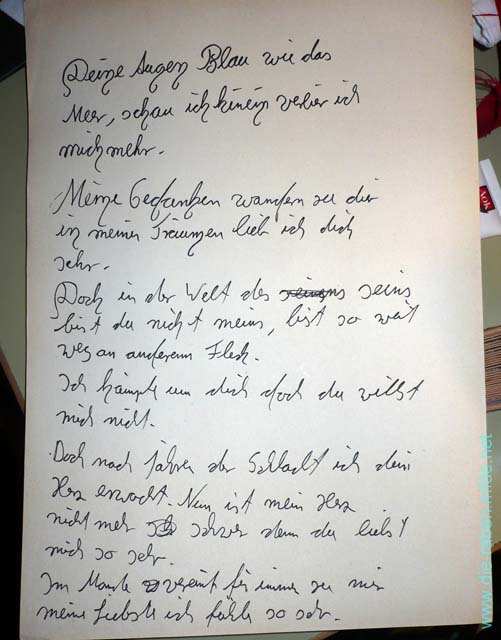 Deine Augen Blau wie das
Meer, schau ich hinein verlier ich
mich mehr.
Meine Gedanken wandern zu dir
in meinen Träumen lieb ich dich
sehr.
Doch in der Welt des seins
bist du nicht meins, bist so weit
weg an anderem Fleck.
Ich kämpfe um dich doch du willst
mich nicht.
Doch nach Jahren der Schlacht ich dein
Herz erwacht. Nun ist mein Herz
nicht mehr schwer denn du liebst
mich so sehr.
Im vereint für immer zu mir
meine Liebste ich fühle so sehr.
www.die-raben.mide.net
Aok